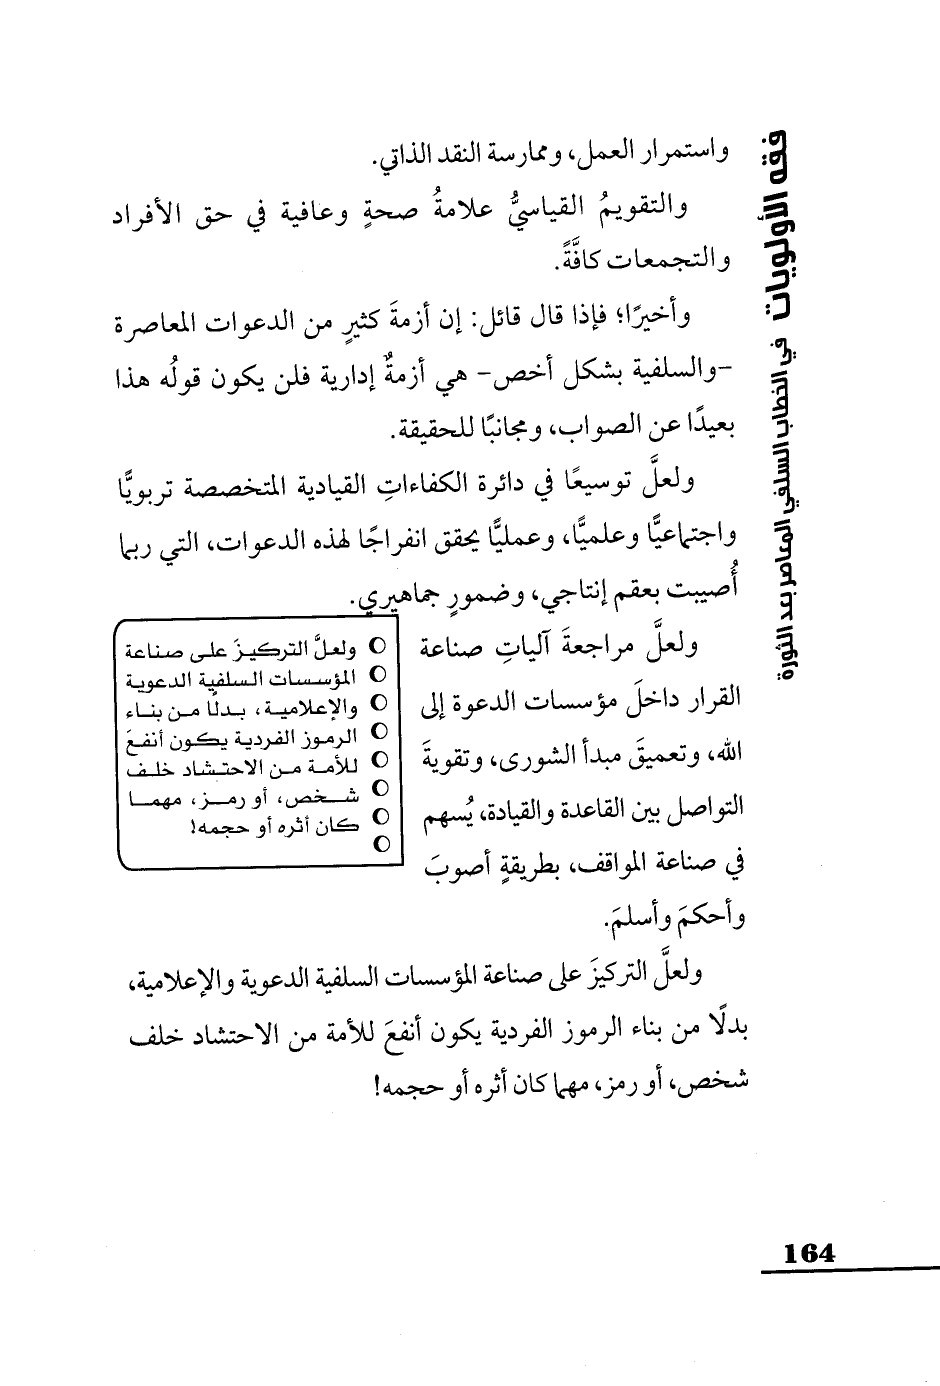 فقه الأولويات في الخطاب السلفي المعاصر بعد الثورة
واستمرار العمل، وممارسة النقد الذاتي.
والتقويمُ القياسيُّ علامةُ صحةٍ وعافية في حق الأفراد
والتجمعات كافَّةً.
وأخيرًا؛ فإذا قال قائل: إن أزمةَ كثيرٍ من الدعوات المعاصرة
-والسلفية بشكل أخص- هي أزمةٌ إدارية فلن يكون قولُه هذا
بعيدًا عن الصواب، ومجانبًا للحقيقة.
ولعلَّ توسيعًا في دائرة الكفاءاتِ القيادية المتخصصة تربويًّا
واجتماعيًّا وعلميًّا، وعمليًّا يحقق انفراجًا لهذه الدعوات، التي ربما
أُصيبت بعقم إنتاجي، وضمورٍ جماهيري.
ولعلَّ مراجعةَ آلياتِ صناعة
القرار داخلَ مؤسسات الدعوة إلى
الله، وتعميقَ مبدأ الشورى، وتقويةَ
التواصل بين القاعدة والقيادة، يُسهم
في صناعة المواقف، بطريقةٍ أصوبَ
وأحكمَ وأسلمَ.
ولعلَّ التركيزَ على صناعة
المؤسسات السلفية الدعوية
والإعلامية، بدلًا من بناء
الرموز الفردية يكون أنفعَ
للأمة من الاحتشاد خلف
شخص، أو رمز، مهما
كان أثره أو حجمه!
ولعلَّ التركيزَ على صناعة المؤسسات السلفية الدعوية والإعلامية،
بدلًا من بناء الرموز الفردية يكون أنفعَ للأمة من الاحتشاد خلف
شخص، أو رمز، مهما كان أثره أو حجمه!
164